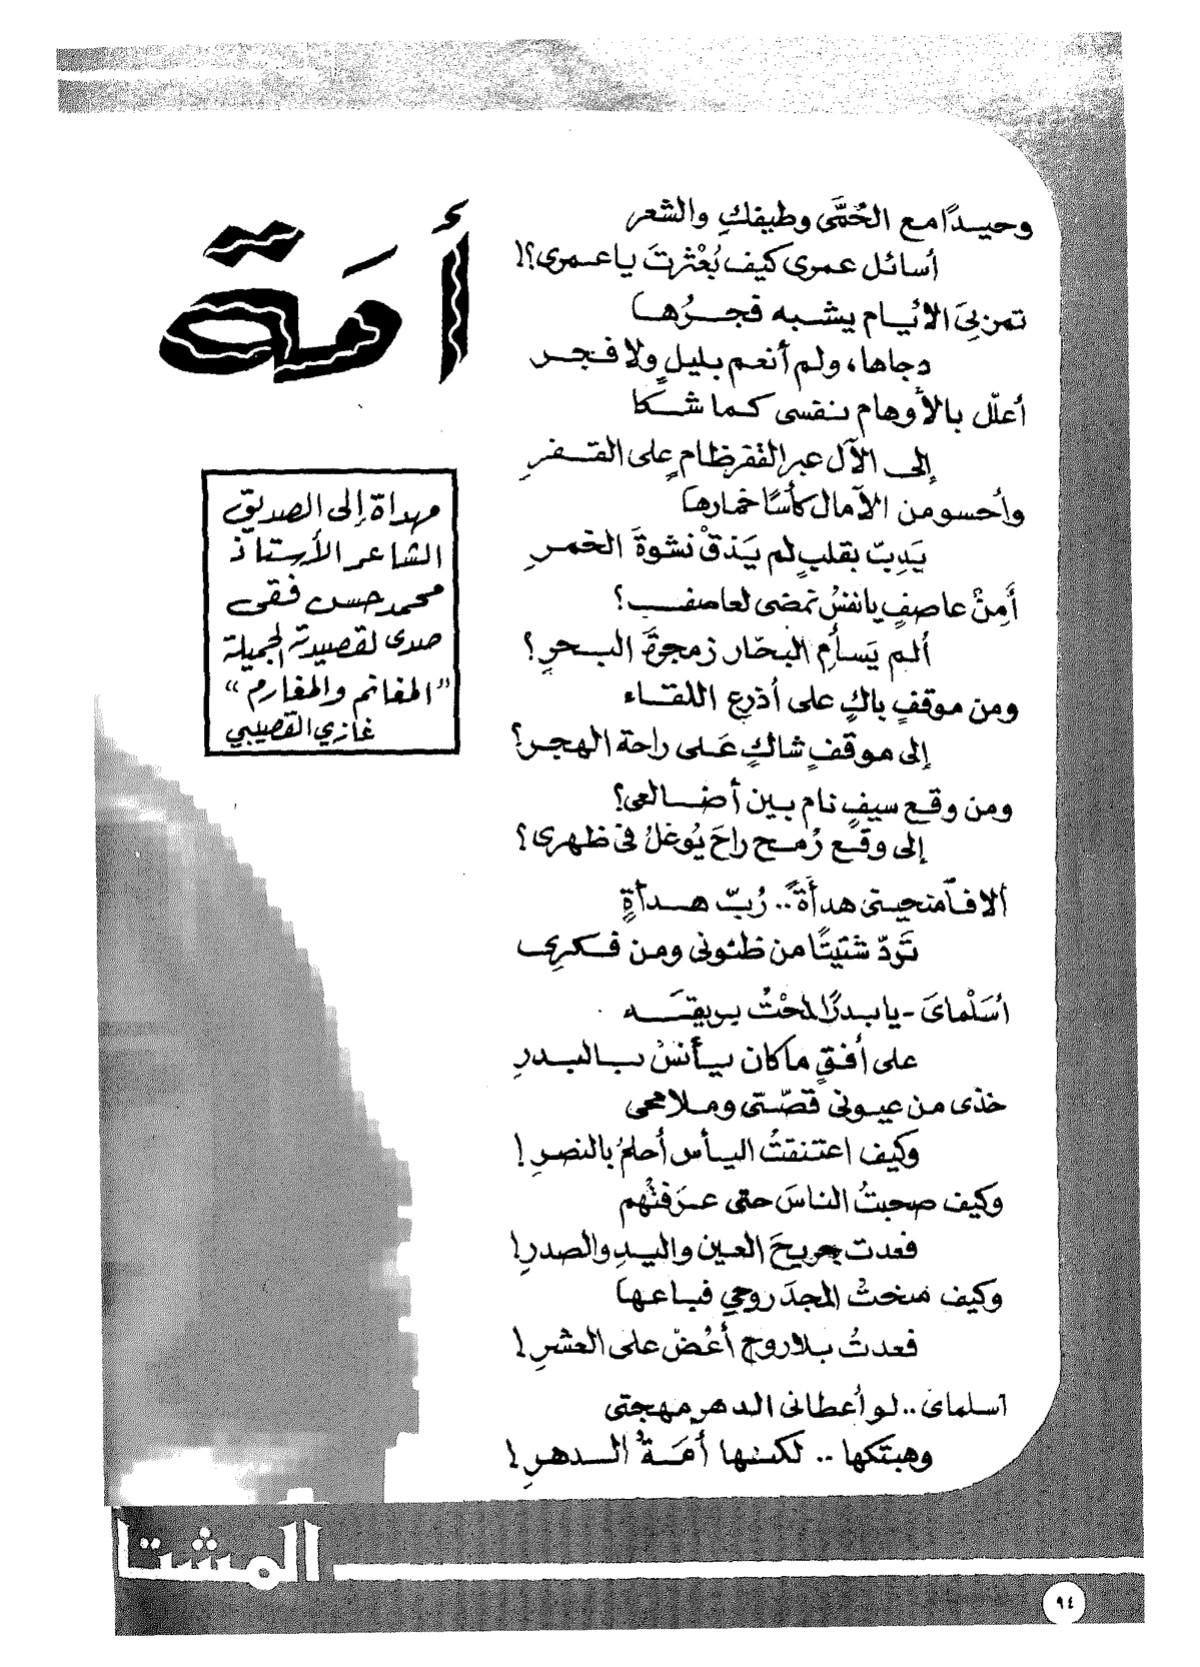 أَمَة
مهداة إلى الصديق
الشاعر الأستاذ
محمد حسن فقي
صدى لقصيدته الجميلة
"المغانم والمغارم"
غازي القصيبي
وحيدًا مع الحُمَّى وطيفكِ والشعر
أسائل عمرى كيف بُعْثرتَ يا عمرى؟!
تمر بيَ الأيام يشبه فجرُها
دجاها، ولم أنعم بليلٍ ولا فجر
أعلّل بالأوهام نفسى كما شكا
إلى الآل عبر القفر ظامٍ على القفرِ
وأحسو من الآمال كأسًا خمارها
يَدِبّ بقلبٍ لم يَذقْ نشوةَ الخمرِ
أَمِنْ عاصفٍ يا نفسُ تمضى لعاصفٍ؟
ألم يَسأمِ البحّار زمجرةَ البحرِ؟
ومن موقفٍ باكٍ على أذرعِ اللقاء
إلى موقفٍ شاكٍ عَلى راحة الهجرِ؟
ومن وقع سيفٍ نام بين أضالعى؟
إلى وقْع رُمحٍ راحَ يُوغلُ فى ظهرى؟
ألا فآمنحينى هدأةً.. رُبّ هدأةٍ
تَردّ شتيتًا من ظنونى ومن فكرِى
أسَلْماىَ - يا بدرًا لمحْتُ بريقَه
على أفقٍ ما كان يأنسُ بالبدرِ
خذى من عيونى قصّتى وملامحى
وكيف اعتنقتُ اليأس أحلمُ بالنصرِ!
وكيف صحبتُ الناسَ حتى عرَفتُهم
فعدت جريحَ العين واليدِ والصدرِ!
وكيف منحتُ المجدَ روحي فباعها
فعدتُ بلا روحٍ أعُضّ على العشرِ!
أسلماىَ.. لو أعطانى الدهر مهجتى
وهبتكها .. لكنها أمَةُ الدهرِ!
المشتا
٩٤